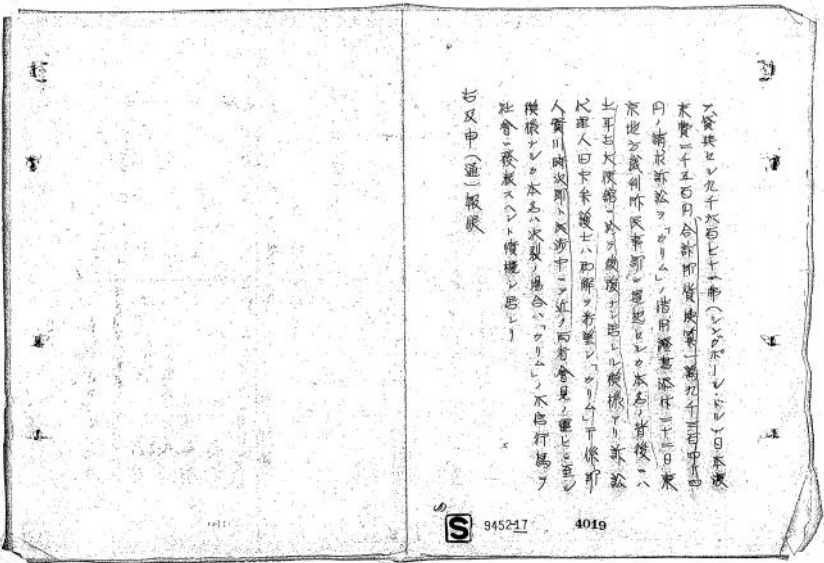 貸与セシ九千六百七十一弗(シンガポール・ドル)日本渡
米費二千五百円合計邦貨換算一萬九千三百四十四
円ノ請求訴訟ヲ「カリム」ノ借用證書添付二十二日東
京地方裁判所民事部ニ提起セシカ本名ノ背後ニハ
土耳古大使館 後援ナシ居レル模様アリ訴訟
代理人田 弁護士ハ和解ヲ希望シ「カリム」下係
人 川時次郎ト交渉中ニテ近ク両者會見ノ運ヒニ至ル
模様ナルカ本名ハ決裂ノ場合ハ「カリム」ノ不信行為ヲ
社會ニ發表スヘシト憤慨シ居レリ
右及申(通)報候
S 9452-17 4019